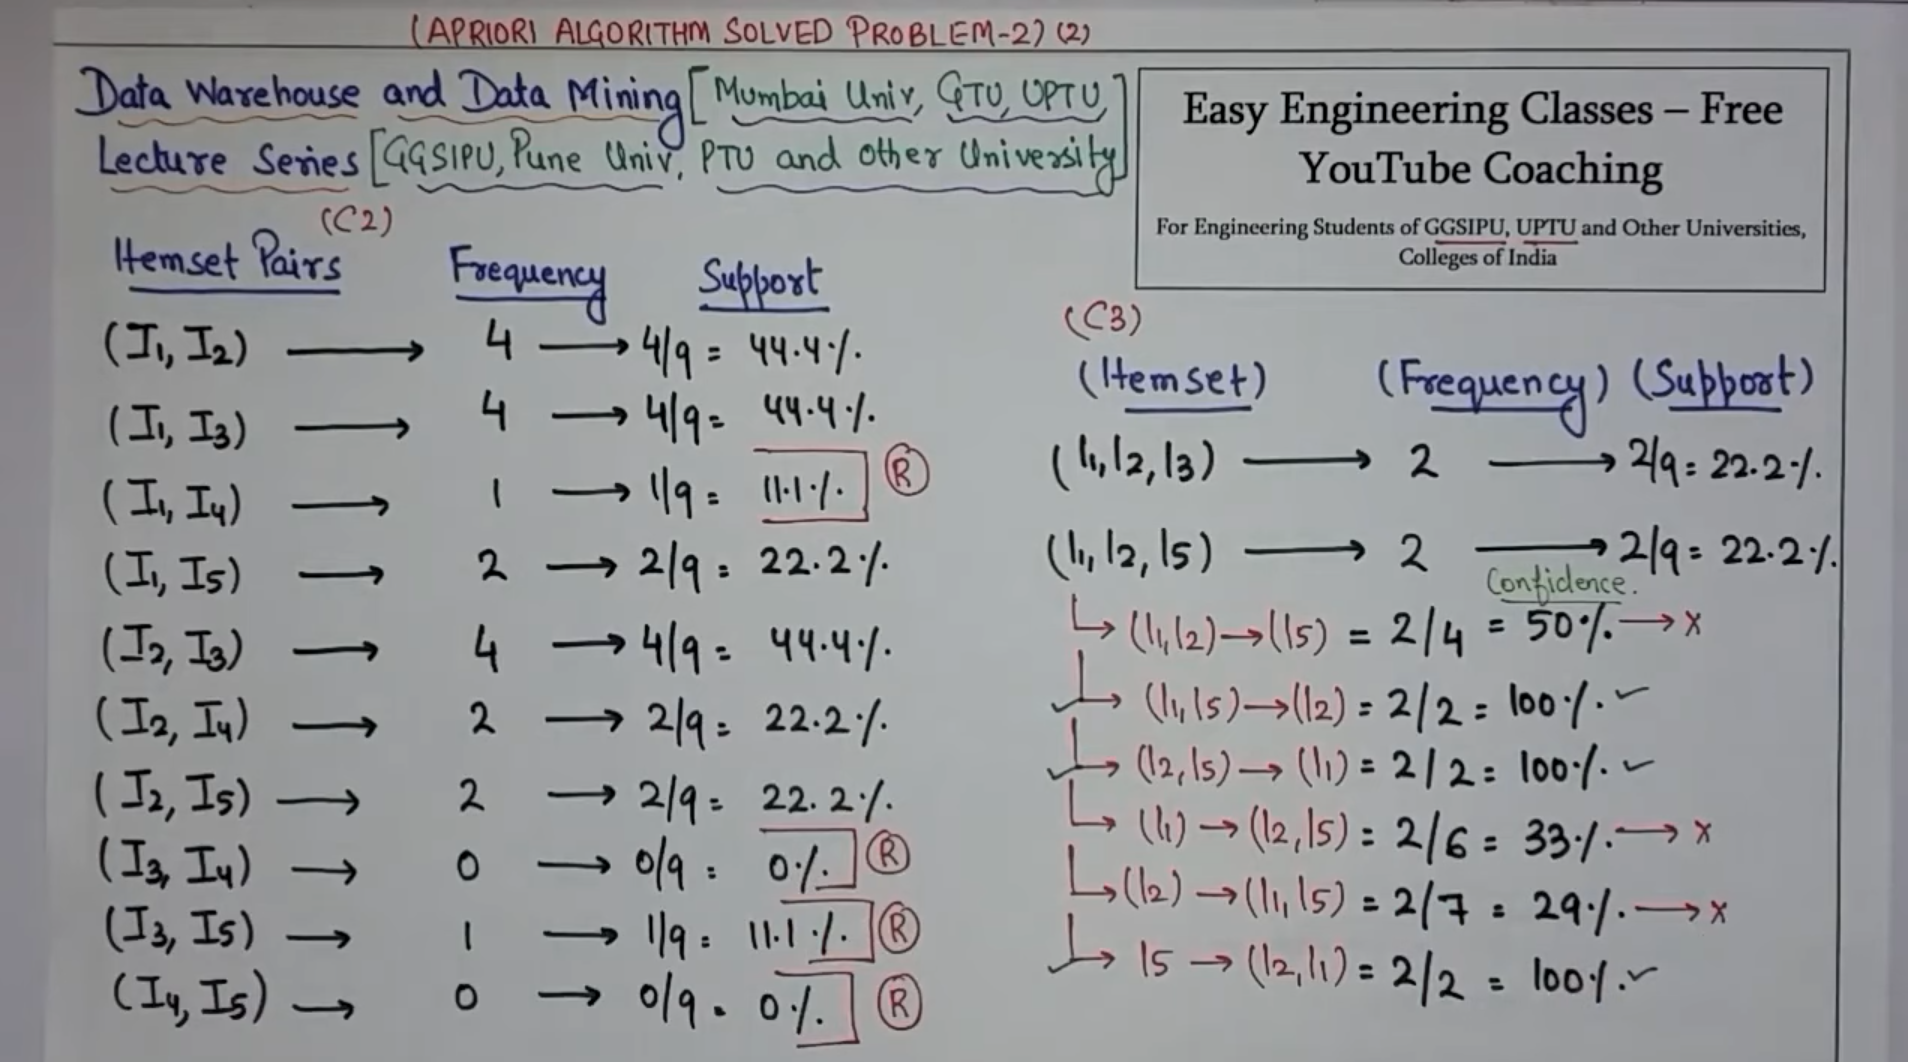 (APRIORI ALGORITHM SOLVED PROBLEM-2) (2)
Data Warehouse and Data Mining [Mumbai Univ, GTU, UPTU,
Lecture Series [GGSIPU, Pune Univ, PTU and other University]
Easy Engineering Classes – Free
YouTube Coaching
For Engineering Students of GGSIPU, UPTU and Other Universities,
Colleges of India
(C2)
Itemset Pairs Frequency Support
(I1, I2) → 4 → 4/9 = 44.4%.
(I1, I3) → 4 → 4/9 = 44.4%.
(I1, I4) → 1 → 1/9 = 11.1%. R
(I1, I5) → 2 → 2/9 = 22.2%.
(I2, I3) → 4 → 4/9 = 44.4%.
(I2, I4) → 2 → 2/9 = 22.2%.
(I2, I5) → 2 → 2/9 = 22.2%.
(I3, I4) → 0 → 0/9 = 0%. R
(I3, I5) → 1 → 1/9 = 11.1%. R
(I4, I5) → 0 → 0/9 = 0%. R
(C3)
(Itemset) (Frequency) (Support)
(I1, I2, I3) → 2 → 2/9 = 22.2%.
(I1, I2, I5) → 2 → 2/9 = 22.2%.
Confidence.
(I1, I2) → (I5) = 2/4 = 50%. → x
(I1, I5) → (I2) = 2/2 = 100%. ✓
(I2, I5) → (I1) = 2/2 = 100%. ✓
(I1) → (I2, I5) = 2/6 = 33%. → x
(I2) → (I1, I5) = 2/7 = 29%. → x
I5 → (I2, I1) = 2/2 = 100%. ✓